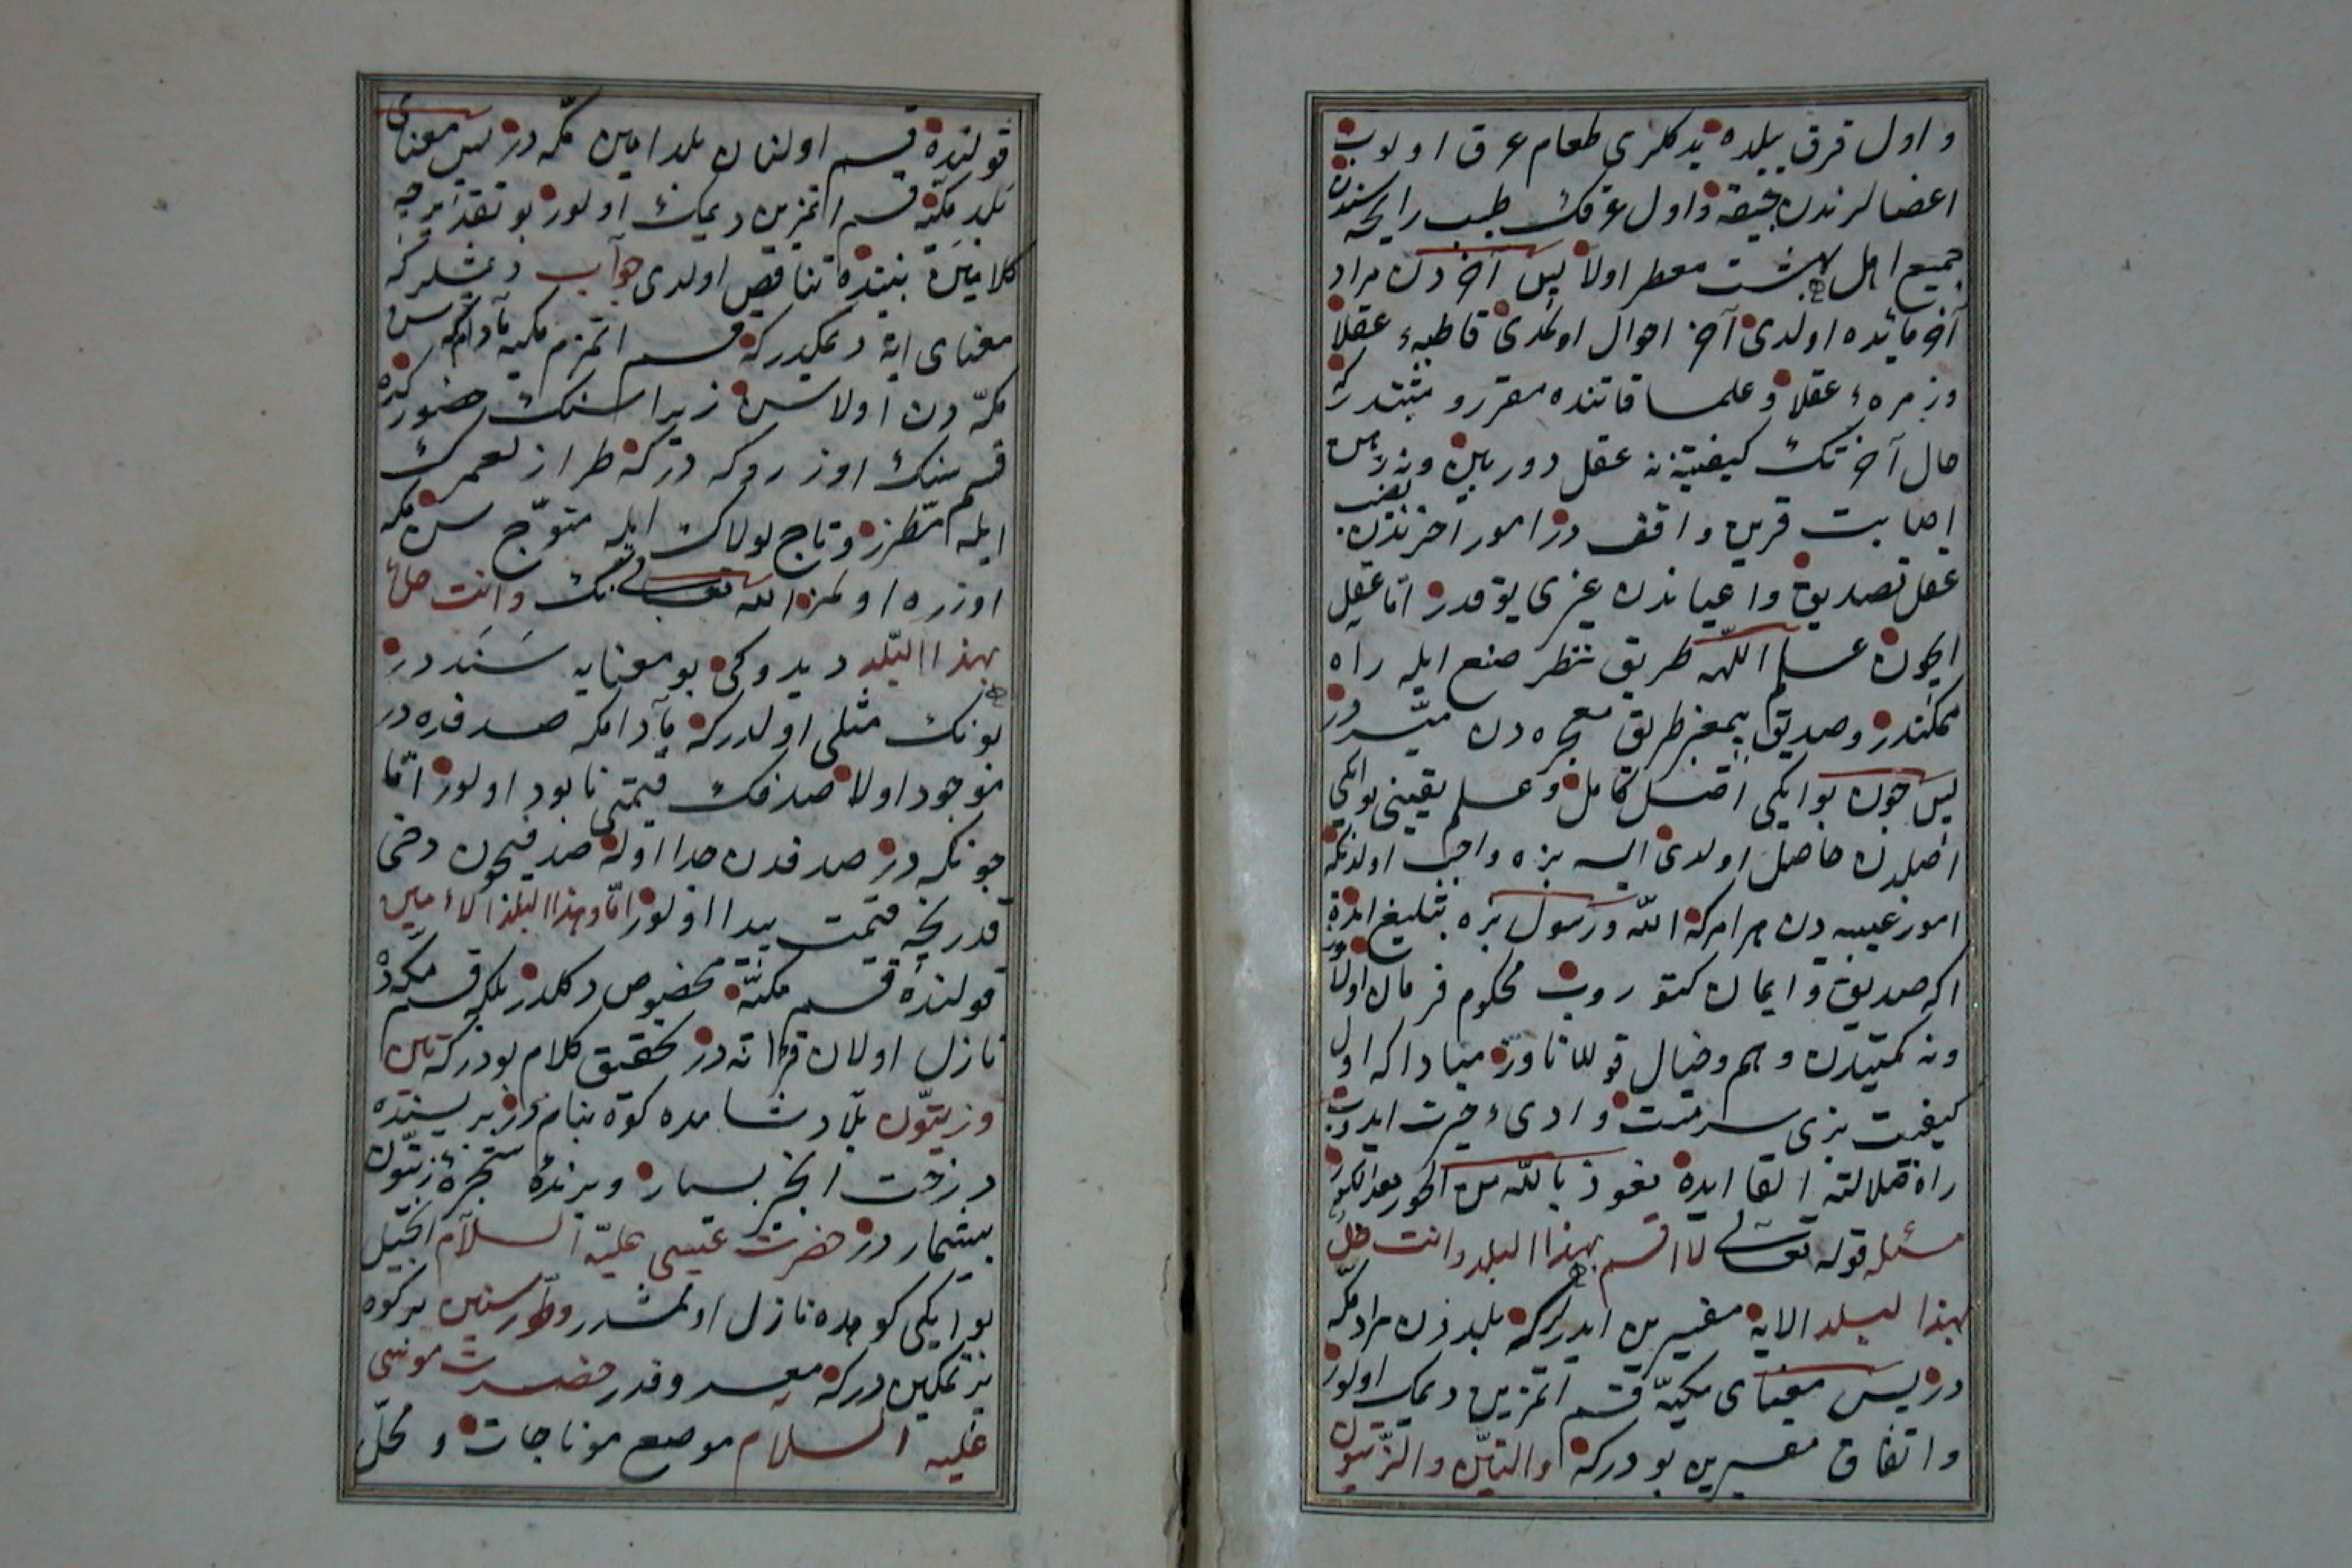 و اول قرق ییلده یدکلری طعام عرق اولوب
اعضالرندن چیقه و اول عرقك طیب رایحه سندن
جمیع اهل بهشت معطر اولا پس آخردن مراد
آخر مائده اولدی آخر احوال اولمدی قاطبهٔ عقلا
وزمرهٔ عقلا و علما قاتنده مقرر و مثبتدر که
حال آخرتك كیفیتنه عقل دوربین و نه
اصابت قرین واقف در امور آخرتدن نصیب
عقل تصدیق و اعیاندن غیری یوقدر امّا عقل
ایچون علم اللّه طریق نظر صنع ایله راه
ممکندر و صدیق پیغمبر طریق معجزه دن میسّر در
پس چون بو ایکی اصل کامل و علم یقینی بو ایکی
اصلدن حاصل اولدی ایسه بزه واجب اولدیکه
امور غیبیه دن هر امر که اللّه و رسول بزه تبلیغ ایده
اکه صدیق و ایمان کتوروب محکوم فرمان اولا
ونه کمیتدن وهم و خیال قوللاناوز مبادا که اول
کیفیت بزی سرمست وادیٔ حیرت ایدوب
راه ضلالته القا ایده نعوذ باللّه من الحور بعد الکور
مسئله قوله تعالی لا اقسم بهذا البلد وانت حلّ
بهذا البلد الایه مفسرین ایدرلر که بلددن مراد مکّه
در پس معنای مکیّه قسم اتمزین دیمك اولور
و اتفاق مفسرین بودرکه والتین والزّیتون
قولنده قسم اولنان بلد امین مکّه در پس معنای
بلد مکیّه قسم اتمزین دیمك اولور بو تقدیرجه
کلامین بیننده تناقض اولدی جواب دیمشلر که
معنای ایة دیمکدر که قسم اتمزم مکیه مادامکه سن
مکّه دن اولاسن زیرا سنك حضورکده
قسم سنك اوزروکه در که طراز لعمرك
ایله مطرز و تاج لولاك ایله متوّج سن مکه
اوزره اولمز اللّه تعالی نك وانت حلّ
بهذا البلد دیدوکی بو معنایه سَنَد در
بونك مثلی اولدر که مادامکه صدفده در
موجود اولا صدفك قیمتی نابود اولور امّا
چونکه در صدفدن جدا اوله صدفیچون دخی
قدرنجه قیمت پیدا اولور امّا وهذا البلد الامین
قولنده قسم مکیّه مخصوص دکلدر بلکه قسم مکّه ده
نازل اولان قرانه در تحقیق کلام بودر که تین
وزیتون بلاد شامده کوه بنام در برسنده
درخت انجیر بسیار و برنده شجرهٔ زیتون
بیشمار در حضرت عیسی علیه السلام انجیل
بو ایکی کوهده نازل اولمشدر وطور سنین بر کوه
پر تمکین در که معروفدر حضرت موسی
علیه السلام موضع موناجات و محلّ